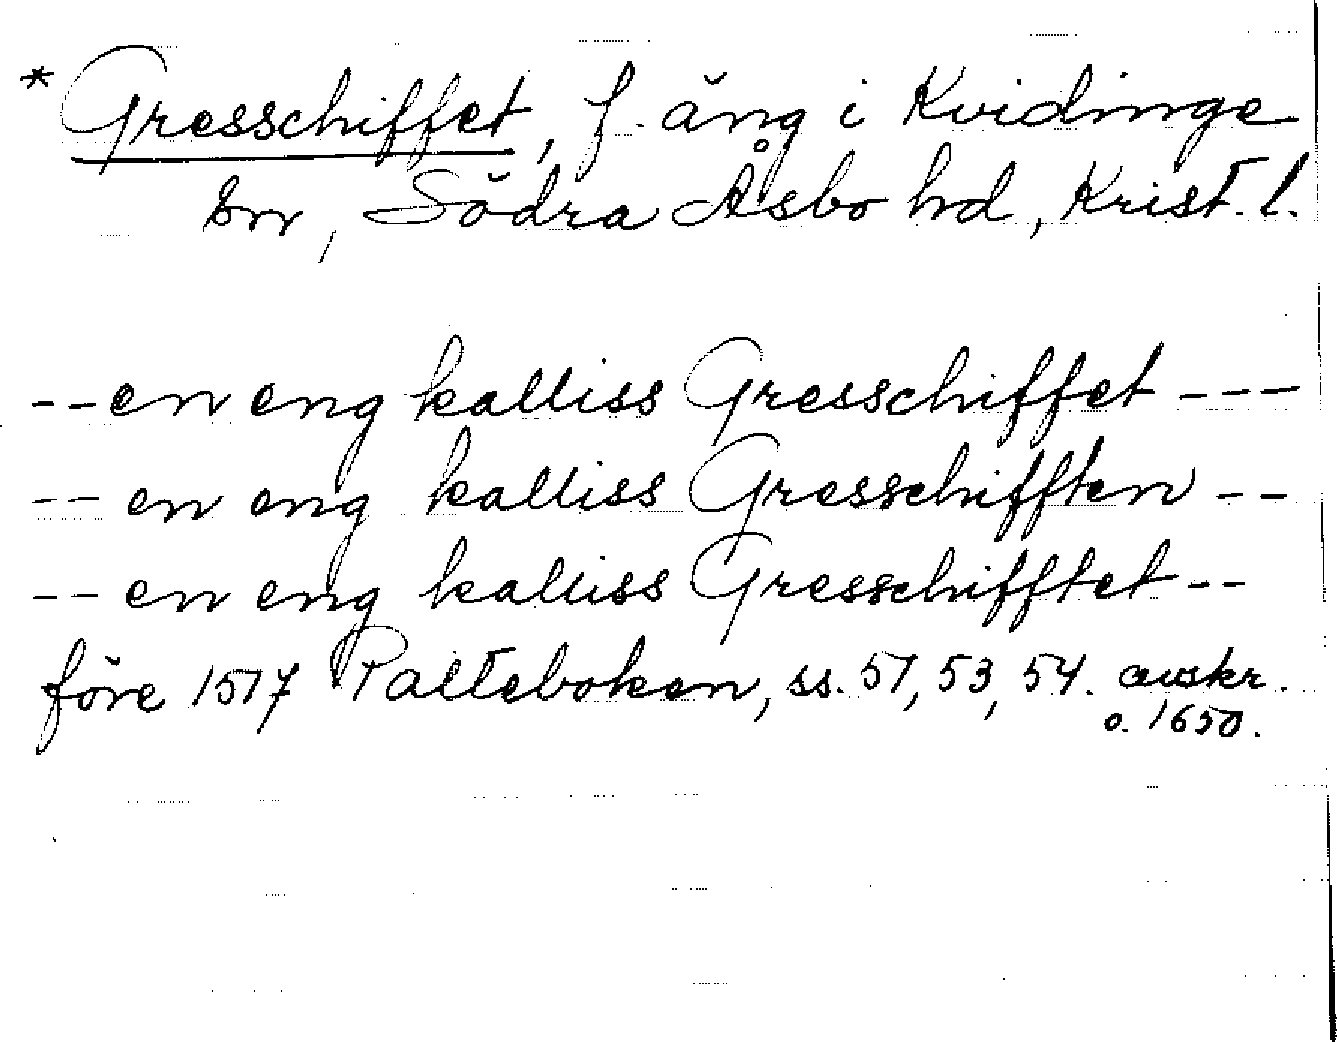 * Gresschiffet, f. äng i Kvidinge
sn, Södra Åsbo hd, Krist. l.
-- en eng kalliss Gresschiffet ---
-- en eng kalliss Gresschifften --
-- en eng kalliss Gresschifftet --
före 1517 Palteboken, ss. 51, 53, 54. avskr.
o. 1650.